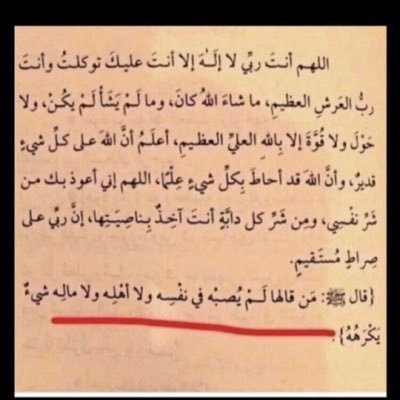 اللهم أنتَ ربِّي لا إلَـٰهَ إلا أنتَ عليكَ توكلتُ وأنتَ
ربُّ العَرشِ العظيمِ، ما شاءَ اللهُ كانَ، وما لَمْ يَشَأْ لَمْ يكُنْ، ولا
حَوْلَ ولا قُوَّةَ إلا بِاللهِ العليِّ العظيمِ، أعلَمُ أنَّ اللهَ على كلِّ شيءٍ
قديرٌ، وأنَّ اللهَ قد أحاطَ بِكلِّ شيءٍ عِلْمًا، اللهم إني أعوذ بك من
شَرِّ نفْسِي، ومِن شَرِّ كل دابَّةٍ أنتَ آخِذٌ بِناصِيَتِها، إنَّ ربِّي على
صِراطٍ مُستَقيمٍ.
{قال ﷺ: مَن قالها لَمْ يُصبْه في نفْسِه ولا أهْلِه ولا مالِه شيءٌ
يَكْرَهُهُ}.